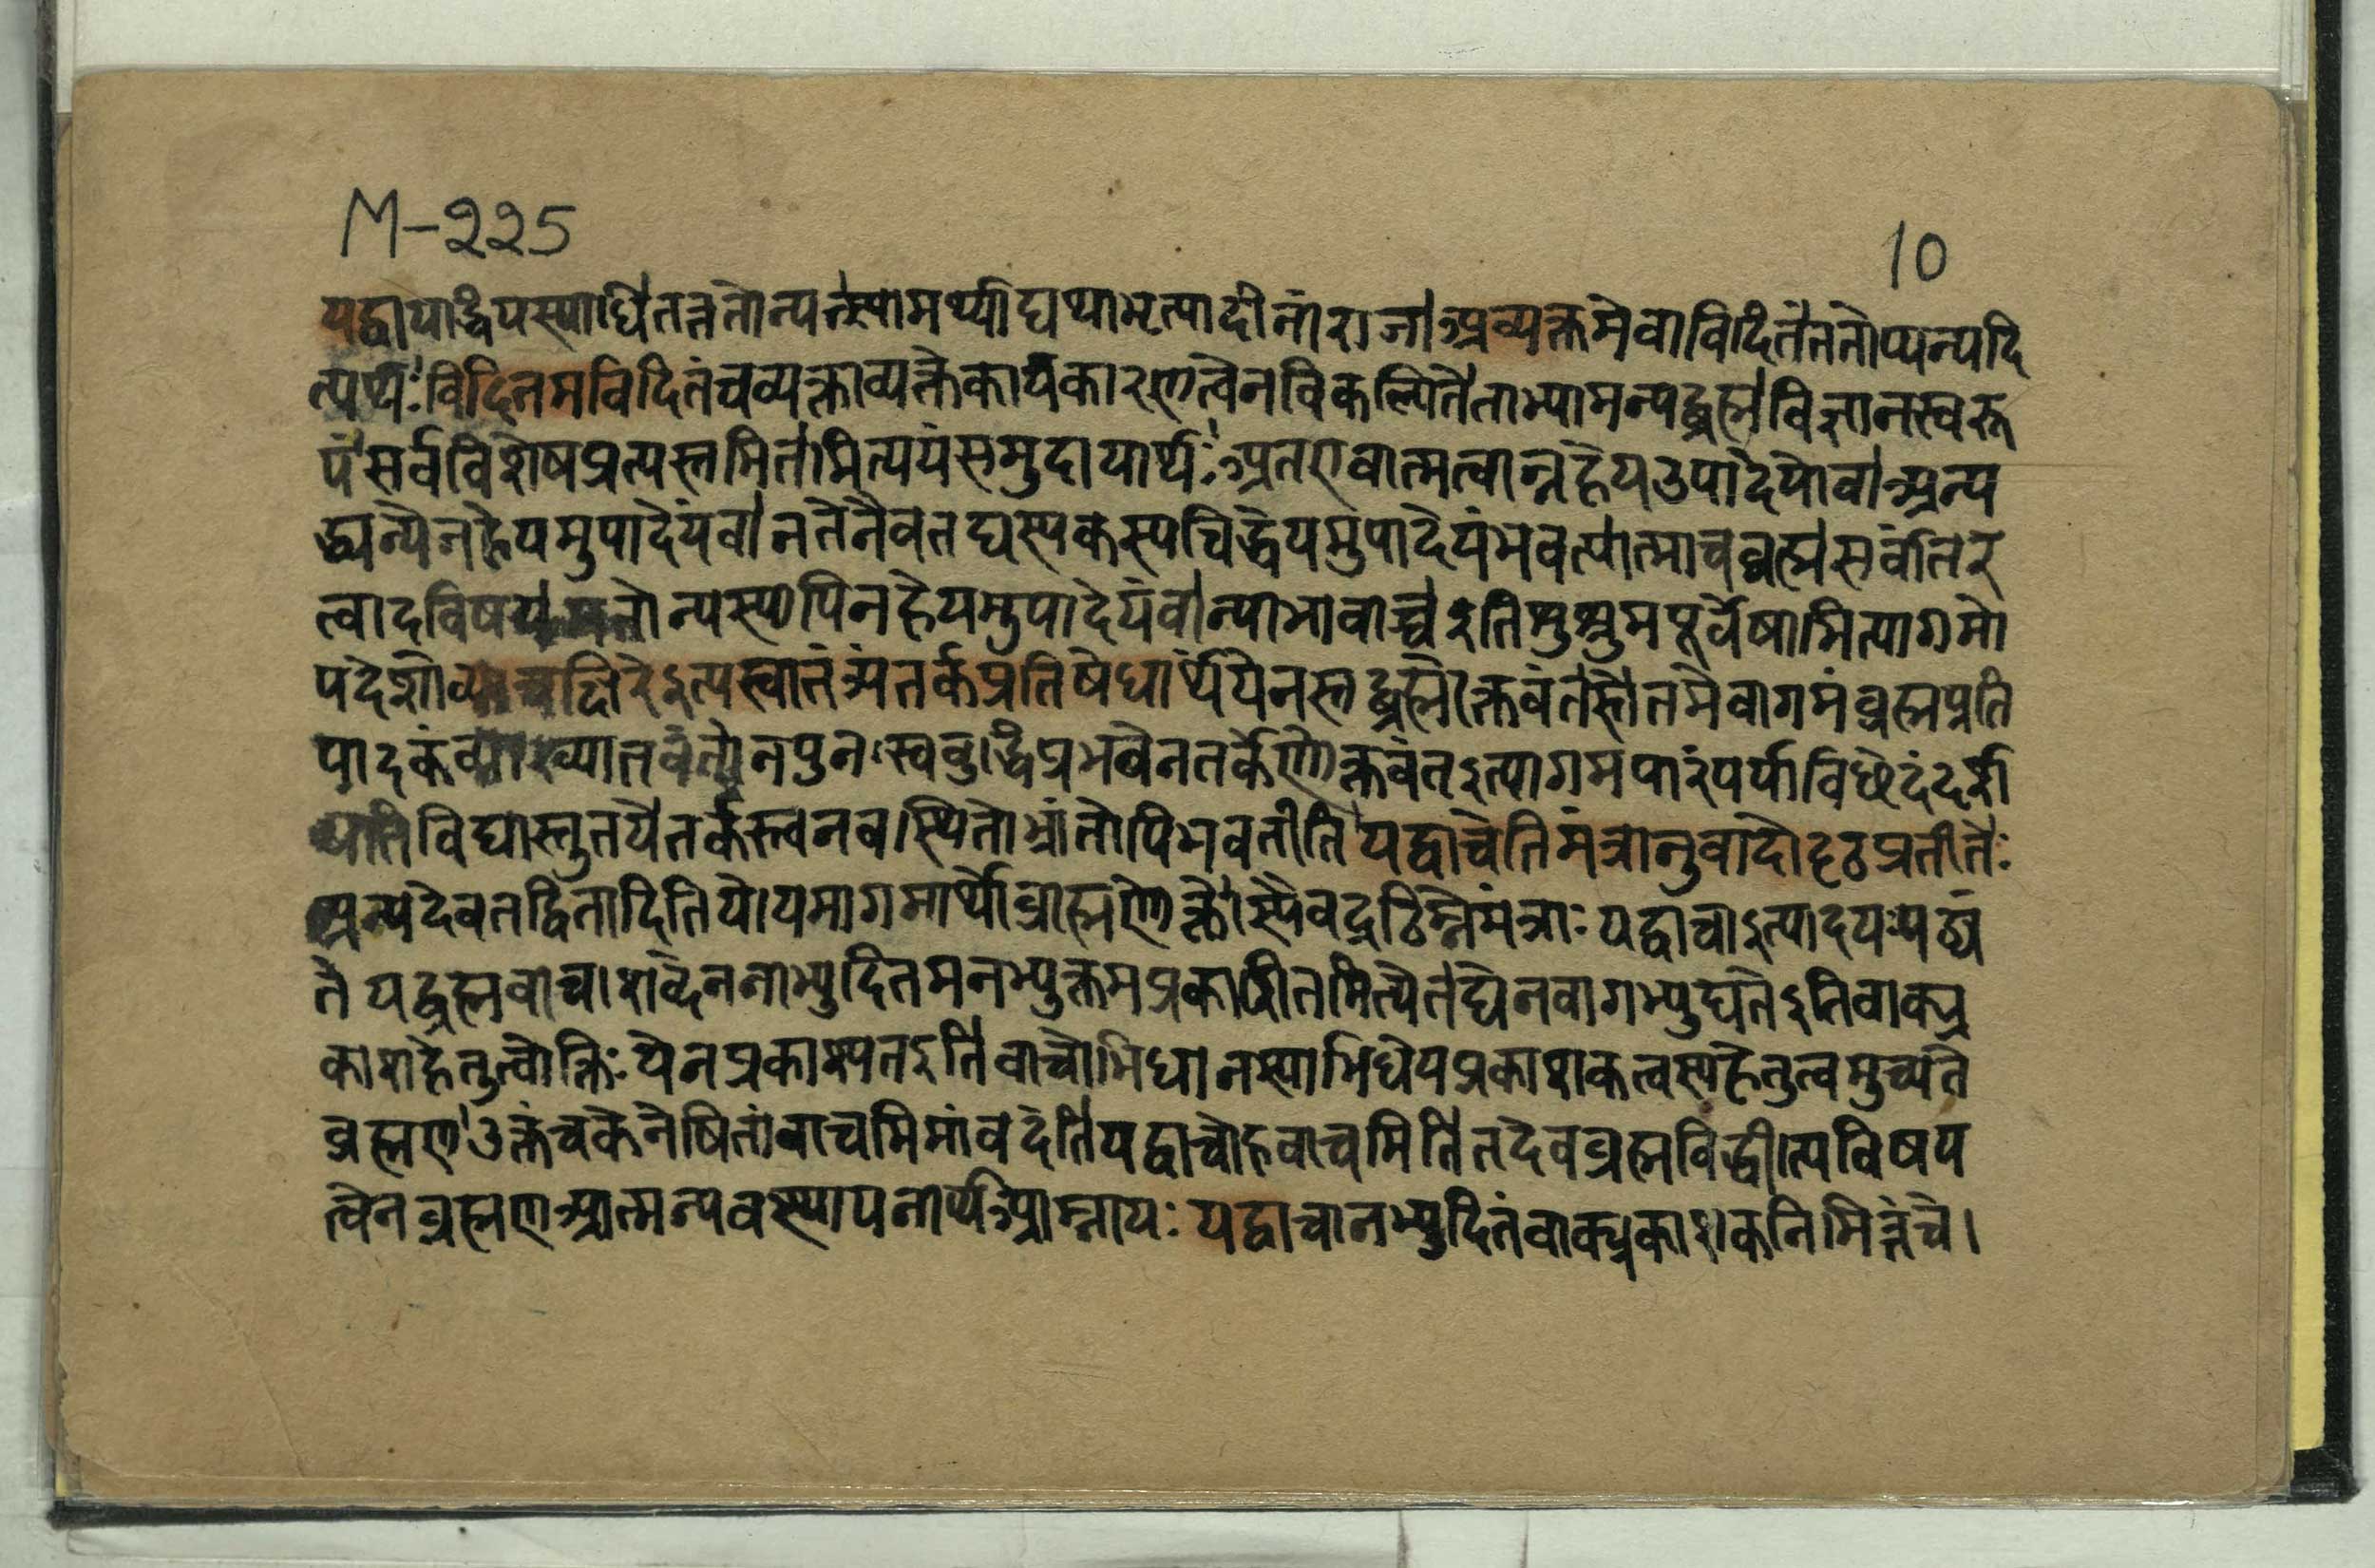 M-225
10
यद्वा यद्धि यस्याधि तत्ततोन्यत्सामर्थ्याद्यथाभृत्यादीनां राजा अव्यक्तमेवाविदितं ततोप्यन्यदि
त्यर्थः विदितमविदितं च व्यक्ताव्यक्ते कार्यकारणत्वेन विकल्पिते ताभ्यामन्यद्ब्रह्म विज्ञानस्वरू
पं सर्वविशेषप्रत्यस्तमितमित्ययं समुदायार्थः अत एवात्मत्वान्न हेय उपादेयो वा अन्य
द्ध्यन्येन हेयमुपादेयं वा न तेनैव तद्यस्य कस्यचिद्धेयमुपादेयं भवत्यात्मा च ब्रह्म सर्वांतर
त्वादविषयं अतोन्यस्यापि न हेयमुपादेयं वान्याभावाच्च इति शुश्रुम पूर्वेषामित्यागमो
पदेशो व्याचचक्षिरे इत्यस्वातंत्र्यं तर्कप्रतिषेधार्थं ये नस्तद्ब्रह्मोक्तवंतस्ते तमेवागमं ब्रह्मप्रति
पादकं व्याख्यातवंतो न पुनः स्वबुद्धिप्रभवेन तर्केणोक्तवंत इत्यागमपारंपर्याविछेदं दर्श
यति विद्यास्तुतये तर्कस्त्वनवस्थितो भ्रांतोपि भवतीति यद्वाचेति मंत्रानुवादो दृढप्रतीतेः
अन्यदेव तद्विदितादिति योयमागमार्थो ब्राह्मणोक्तोस्यैव द्रढिम्ने मंत्राः यद्वाचा इत्यादयः पठ्यं
ते यद्ब्रह्म वाचा शब्देन नाभ्युदितमनभ्युक्तमप्रकाशितमित्येतद्येन वागभ्युद्यते इति वाक्प्र
काशहेतुत्वोक्तिः येन प्रकाश्यत इति वाचोभिधानस्याभिधेयप्रकाशकत्वस्य हेतुत्वमुच्यते
ब्रह्मण उक्तं च केनेषितां वाचमिमां वदंति यद्वाचो ह वाचमिति तदेव ब्रह्म विद्धीत्यविषय
त्वेन ब्रह्मण आत्मन्यवस्थापनार्थ आम्नायः यद्वाचानभ्युदितं वाक्प्रकाशकनिमित्तं चे।